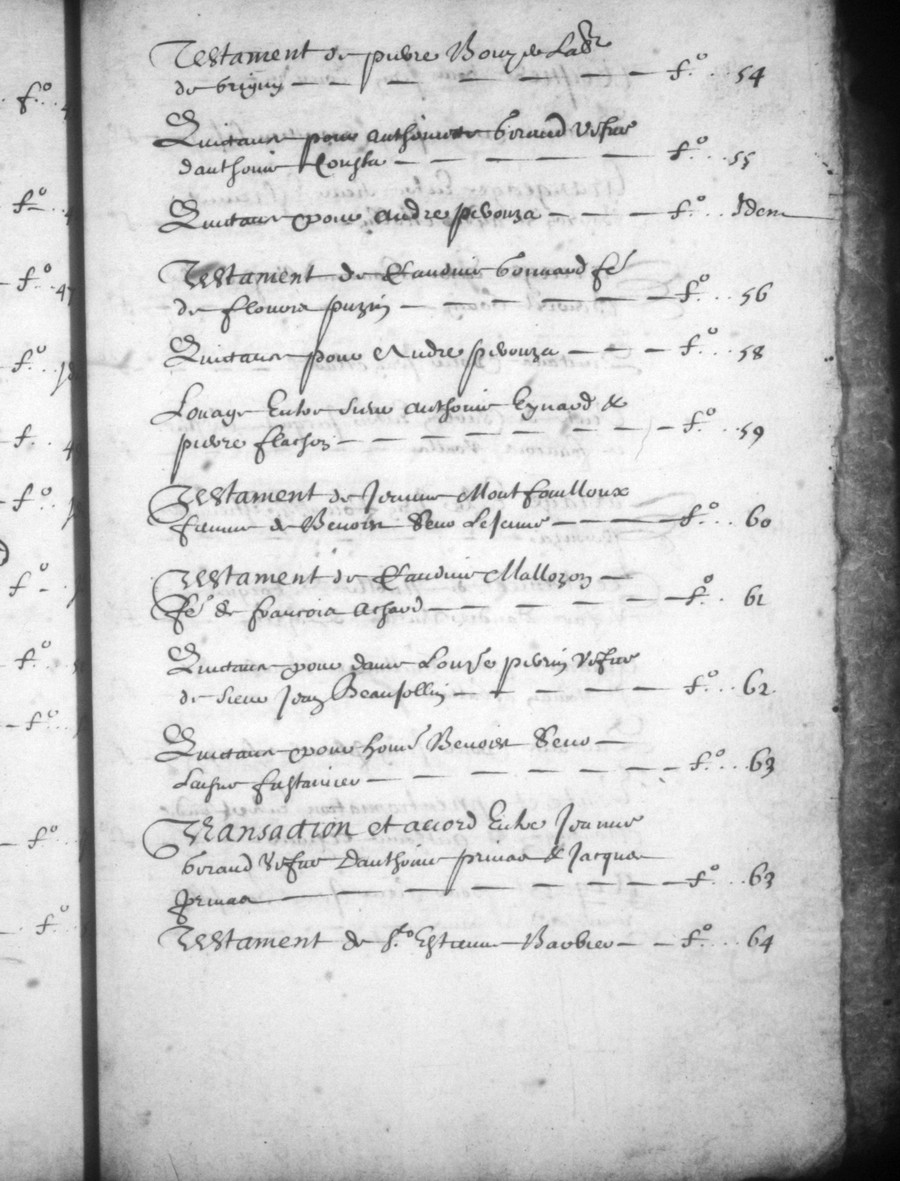 f.o
f.o
f.o 47
f.o
f.
f.o
f.o
f.o
f.o
f.o
f.o
Testament de pierre Bouzy de Labr
de brigny — — — — — f.o .. 54
Quictance pour anthoinette Giraud vefve
danthoine Cousta — — — — f.o .. 55
Quictance pour andre pivouza — — — f.o .. Idem
Testament de Claudine Gonnard fe
de fleurie puzin — — — — — f.o .. 56
Quictance pour Andre pivouza — — — f.o .. 58
Louage Entre Sieur anthoine Eynard &
pierre flachon — — — — — f.o .. 59
Testament de Jeanne Montfouilloux
femme de Benoist Seno Le Jeune — — — f.o .. 60
Testament de Claudine Mallozon —
fe de francois Achard — — — — f.o .. 61
Quictance pour dame Louyse pierrin vefve
de Sieur Jean Beaujollin — — — — f.o .. 62
Quictance pour hone Benoist Seno —
Laisne fustainier — — — — — f.o .. 63
Transaction et accord Entre Jeanne
Giraud vefve Danthoine primat & Jacques
primat — — — — — f.o .. 63
Testament de Estienne Barbier — — f.o .. 64